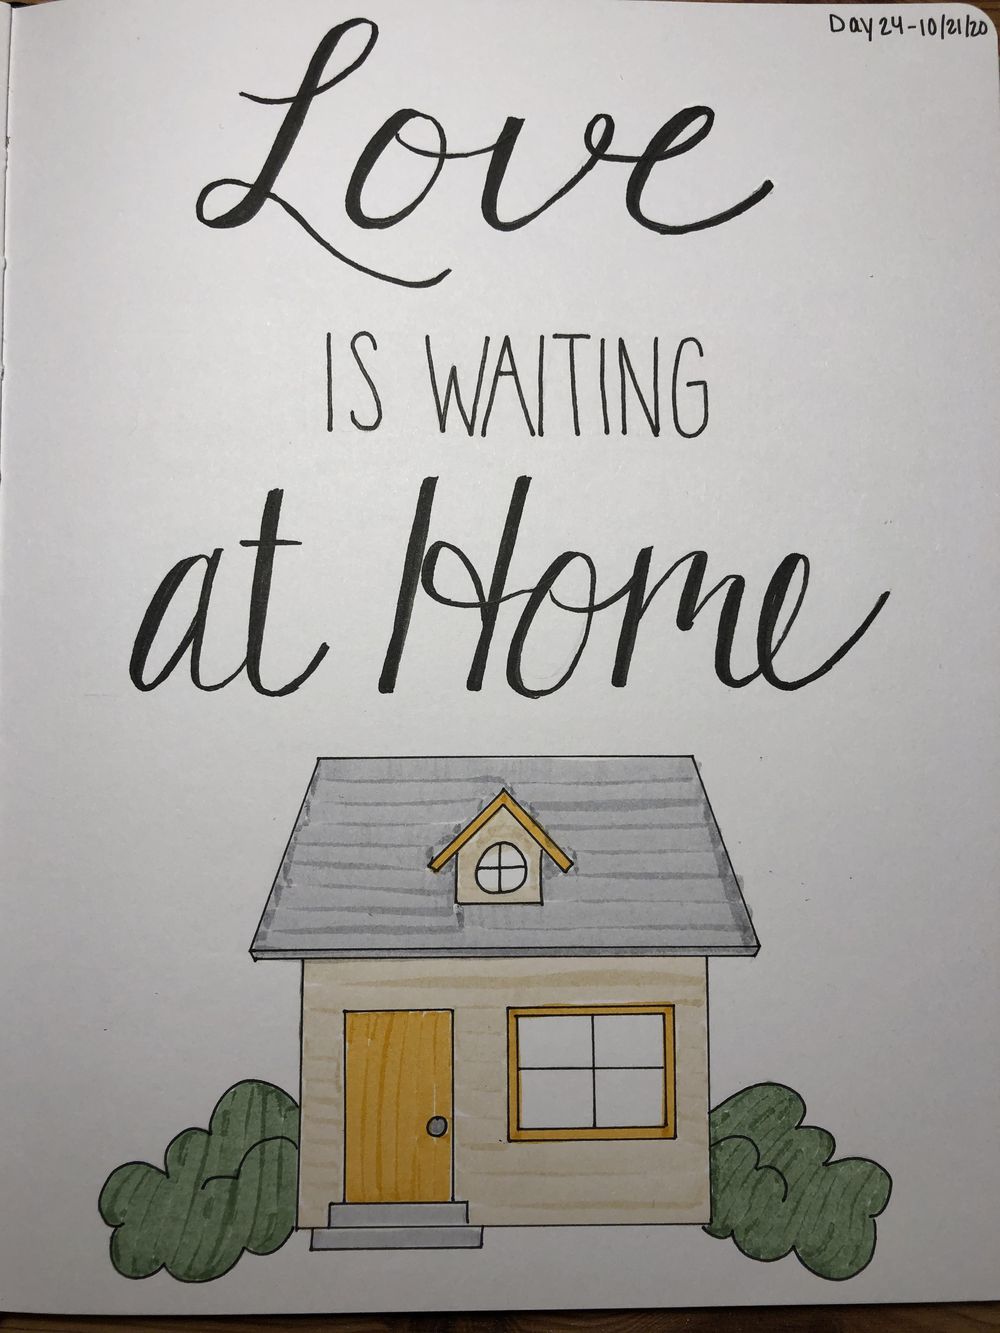 Day 24-10/21/20
Love
IS WAITING
at Home